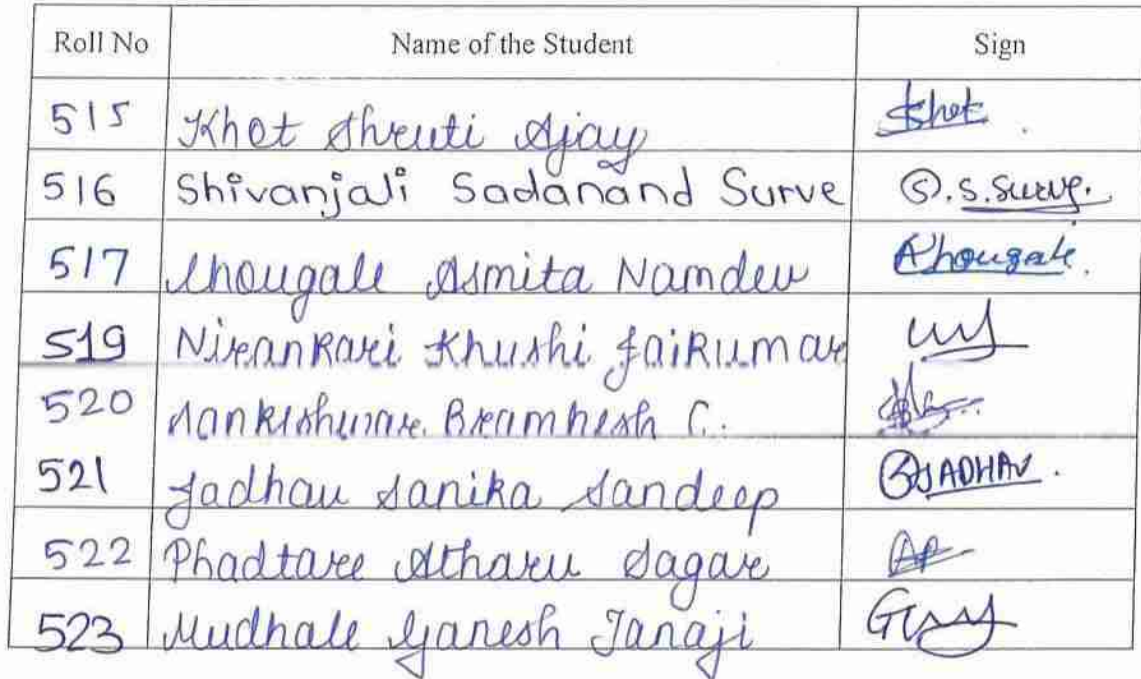 Roll No Name of the Student Sign
515 Khot Shruti Ajay Khot.
516 Shivanjali Sadanand Surve S.S.Surve.
517 Chougale Asmita Namdev Chougale.
519 Nirankari Khushi Jaikumar
520 Sankeshwar. Bramhesh C.
521 Jadhav Sanika Sandeep SJADHAV.
522 Phadtare Atharv Sagar AP
523 Mudhale Ganesh Tanaji